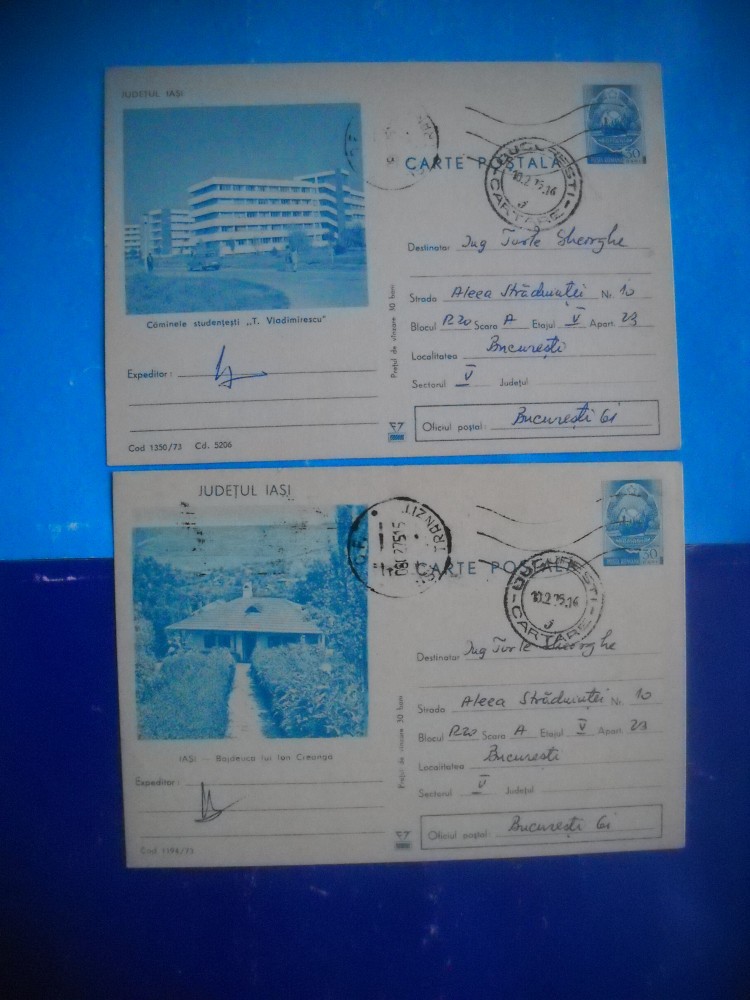 JUDEȚUL IAȘI
CARTE POSTALĂ
BUCUREȘTI
10.2.75.16
CARTARE
50
Destinatar Ing Turle Gheorghe
Strada Aleea Străduinței Nr. 10
Blocul P20 Scara A Etajul V Apart. 23
Localitatea București
Sectorul V Județul
Oficiul poștal: București 61
Prețul de vînzare 30 bani
Căminele studențești „T. Vladimirescu"
Expeditor:
Cod 1350/73 Cd. 5206
JUDEȚUL IAȘI
TRANZIT
CARTE POȘTALĂ
BUCUREȘTI
10.2.75.16
CARTARE
50
Destinatar Ing Turle Gheorghe
Strada Aleea Străduinței Nr. 10
Blocul P20 Scara A Etajul V Apart. 23
Localitatea București
Sectorul V Județul
Oficiul poștal: București 61
Prețul de vînzare 30 bani
IAȘI — Bojdeuca lui Ion Creangă
Expeditor:
Cod 1196/73